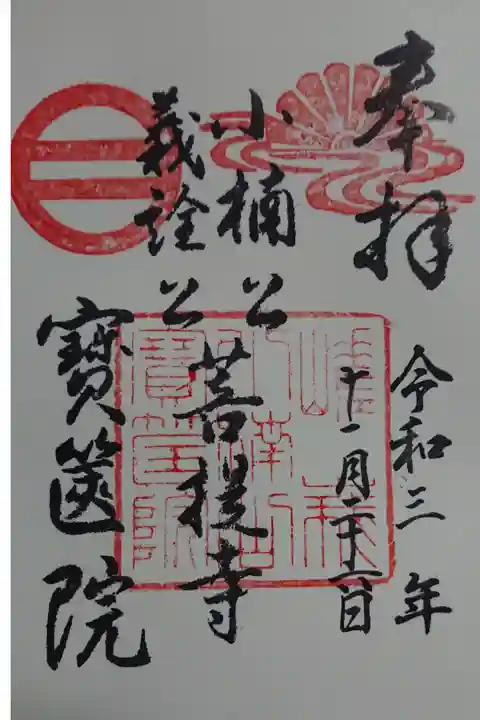 奉拝
令和三年
十一月二十一日
小楠公
義詮公
菩提寺
寶篋院